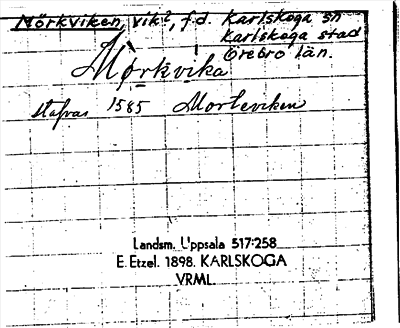 Mörkviken, vik?, f.d. Karlskoga sn
Karlskoga stad
Örebro län.
Mørkvika
stafvas 1585 Morteviken
Landsm. Uppsala 517:258
E. Etzel. 1898. KARLSKOGA
VRML.